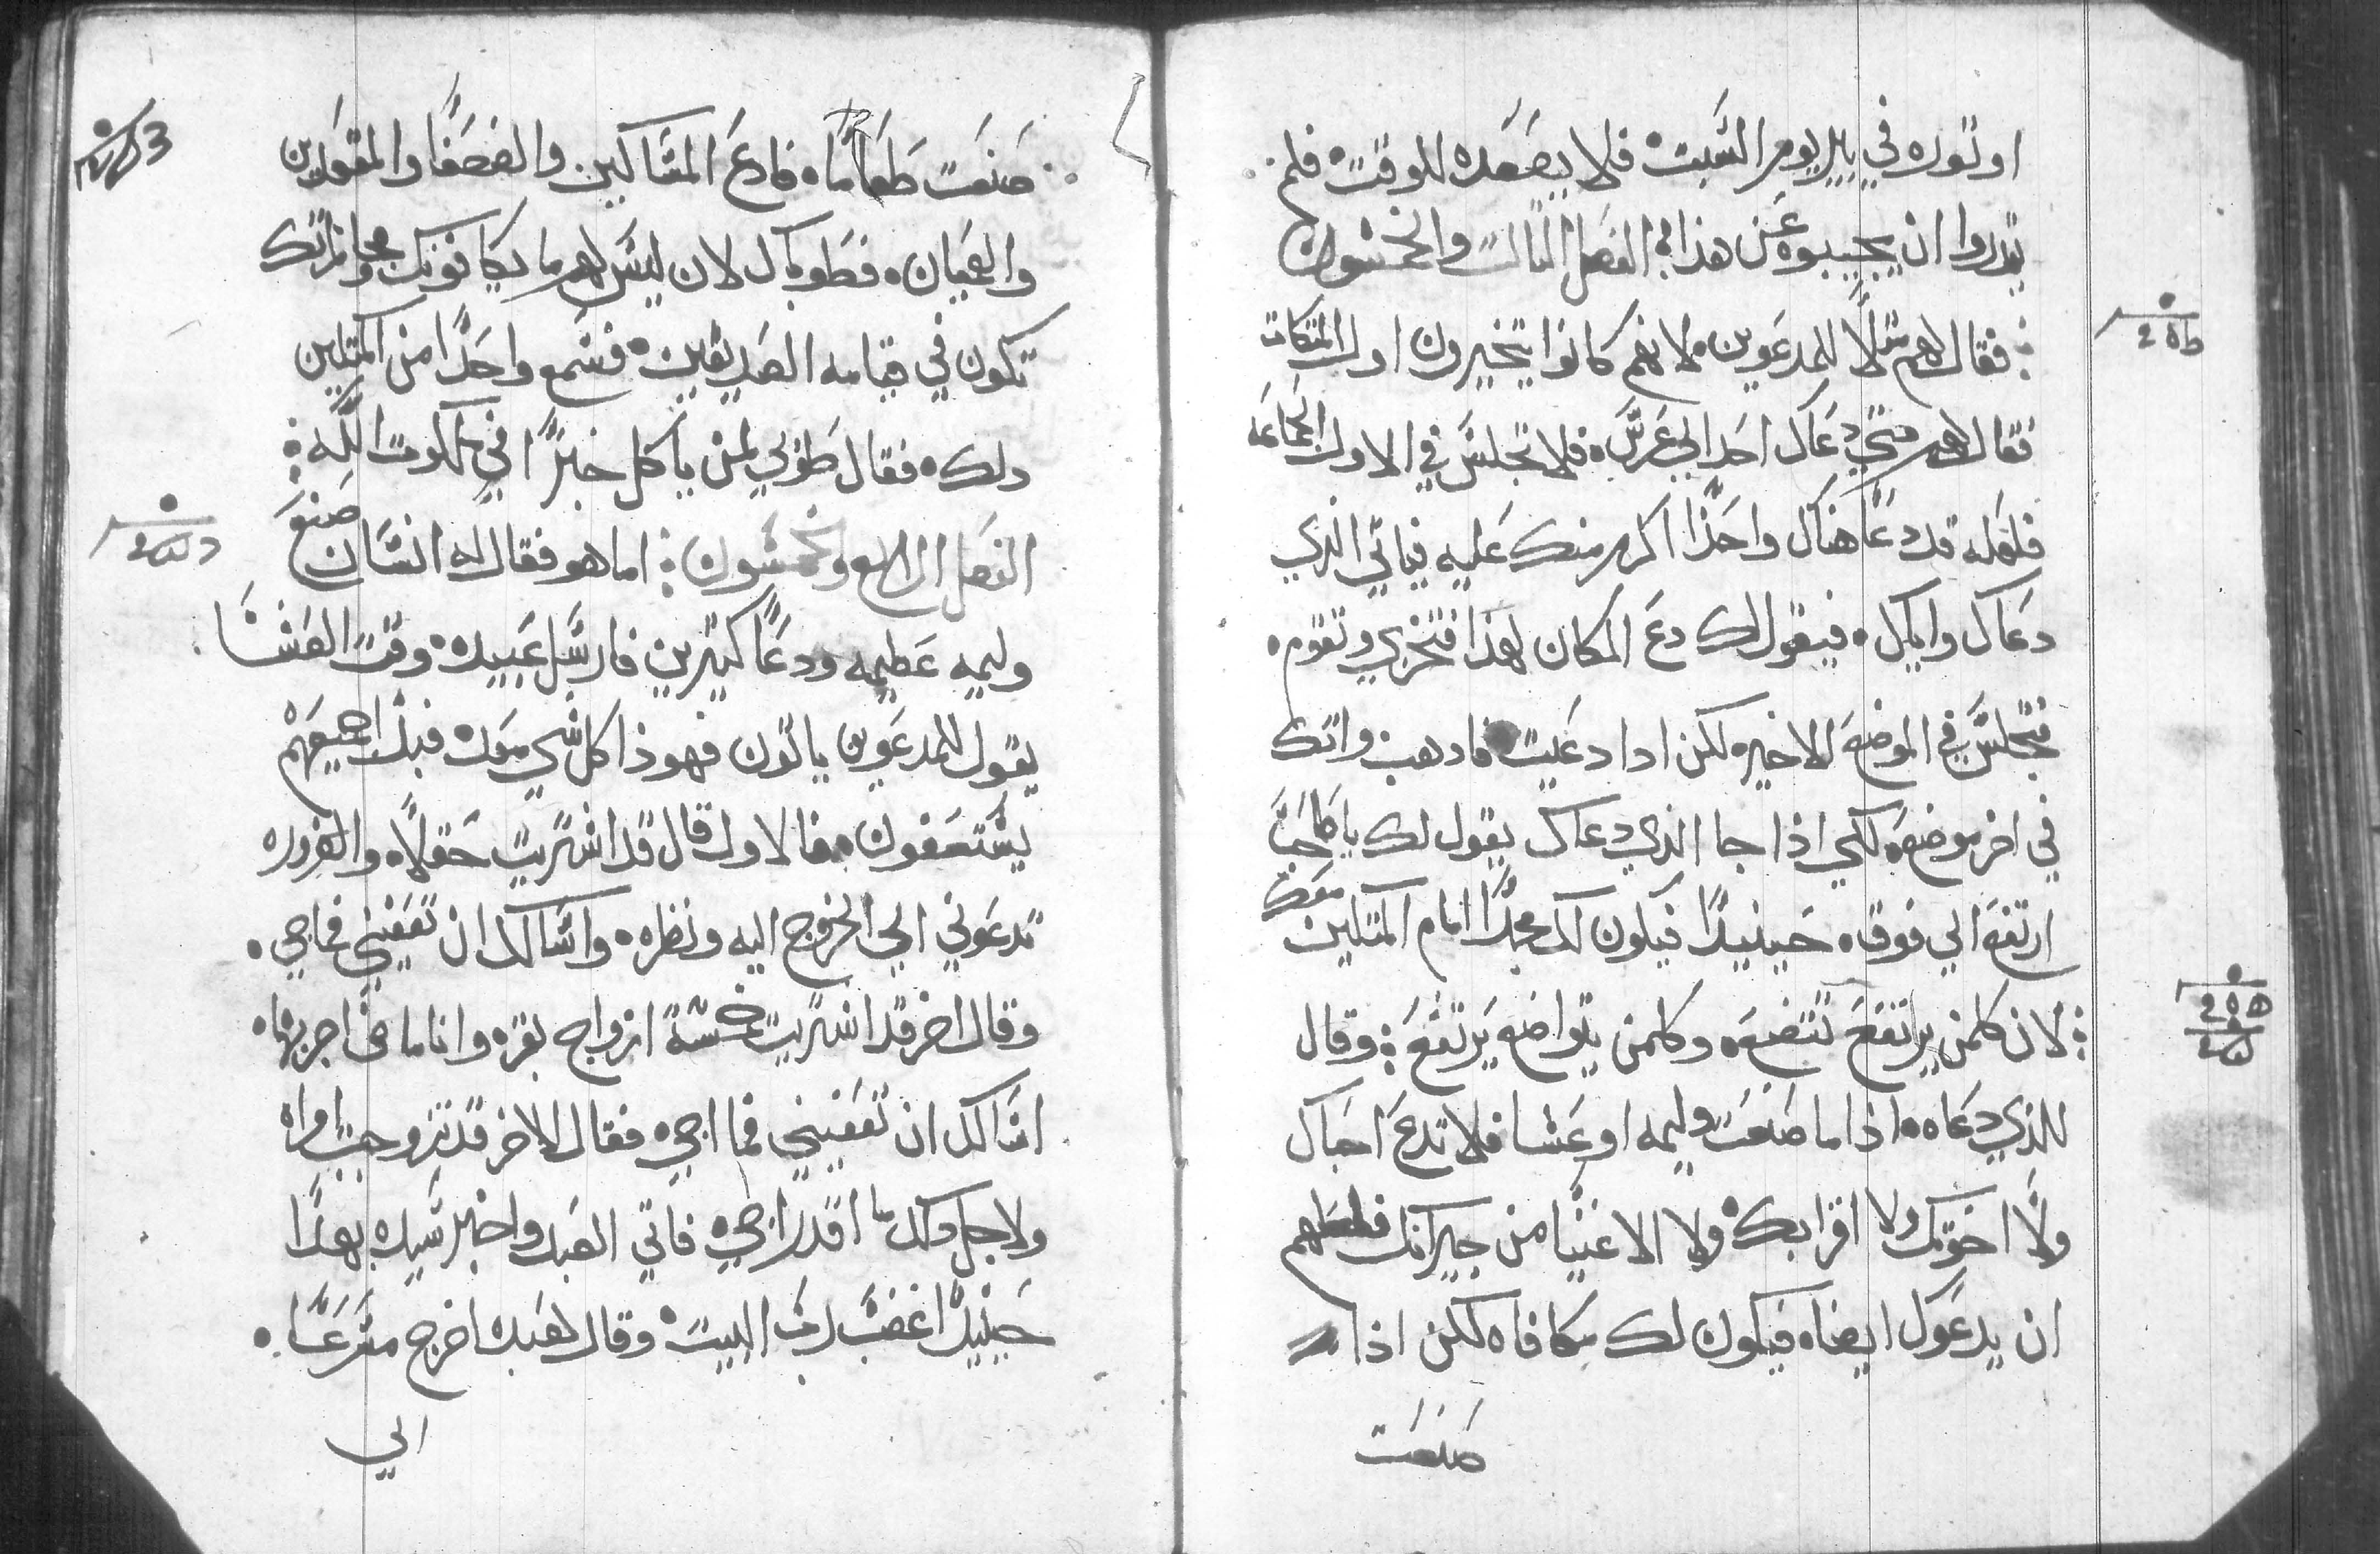 او توره في بير يوم السبت فلا يصعده للوقت فلم
يقدروا ان يجيبوه عن هذا الفصل الثالث والخمسون
فقال لهم مثلاً للمدعوين لانهم كانوا يتخيرون اول المتكات
فقال لهم متي دعاك احد الي عرس فلا تجلس في الاول الجماعه
فلعله قد دعا هناك واحداً اكرم منك عليه فياتي الذي
دعاك واياك فيقول لك دع المكان لهذا فتخزي وتقوم
فتجلس في الموضع الاخير لكن ادا دعيت فادهب واتك
في اخر موضع لكي اذا جا الذي دعاك يقول لك يا صاحب
ارتفع الي فوق حينيداً فيكون لك مجداً امام المتكين معك
لان كلمن يرتفع يتضع وكلمن يتواضع يرتفع وقال
للذي دعاه اذا ما صنعت وليمه او عشا فلا تدع احباك
ولا اخوتك ولا اقرابك ولا الاغنيا من جيرانك فلعلهم
ان يدعوك ايضاه فيكون لك مكافاه لكن اذا
صنعت
صنعت طعاماً فادع المساكين والضعفا والمقعدين
والعميان فطوباك لان ليس لهم ما يكافونك ومجازاتك
تكون في قيامه الصديقين فسمع واحداً من المتكين
دلك فقال طوبي لمن ياكل خبزاً في ملكوت الله
الفصل الرابع والخمسون اما هو فقال له انسان صنع
وليمه عظيمه ودعا كتيرين فارسل عبيده وقت العشا
يقول للمدعوين ياتون فهوذا كل شي معد فبدا جميعهم
يستعفون فالاول قال قد اشتريت حقلاً والضروره
تدعوني الي الخروج اليه ونظره واسالك ان تعفيني فما اجي
وقال اخر قد اشتريت خمسة ازواج بقر وانا ماضي اجربها
اسالك ان تعفيني فما اجي فقال الاخر قد تزوجت امراه
ولاجل دلك ما اقدر اجي فاتي العبد واخبر سيده بهدا
حينيداً غضب رب البيت وقال لعبده اخرج مسرعاً
الي